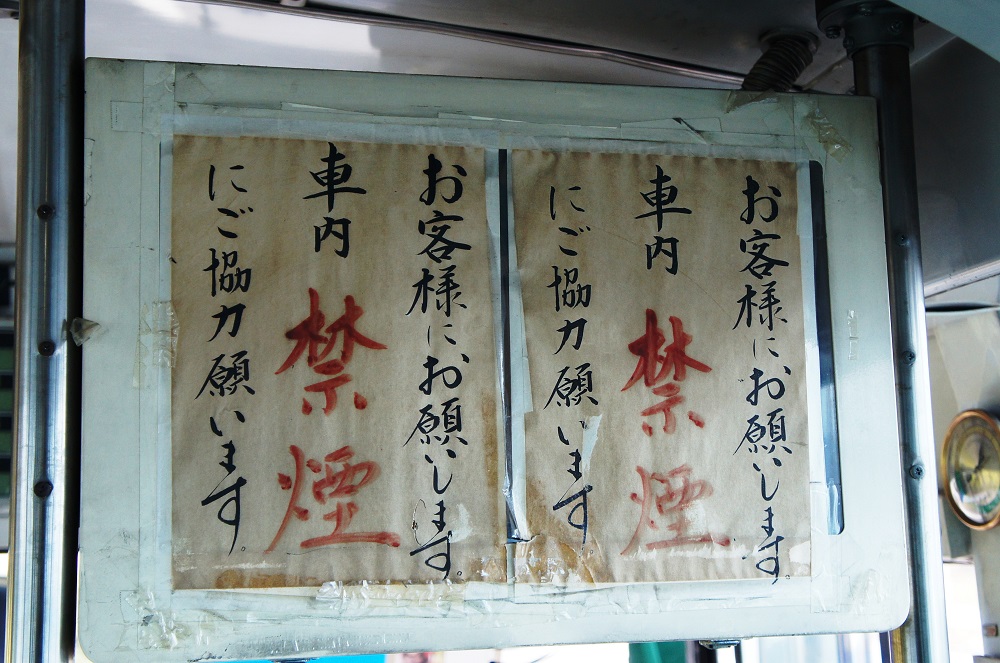 お客様にお願いします。
車内禁煙
にご協力願います。
お客様にお願いします。
車内禁煙
にご協力願います